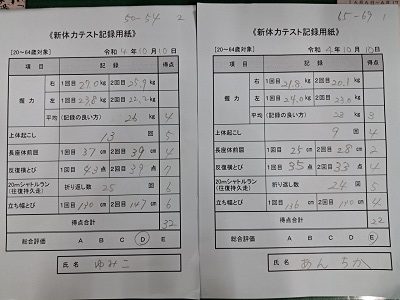 50-54 2
《新体力テスト記録用紙》
[20~64歳対象] 令和 4年10月10日
項目 記録 得点
握力 右 1回目 27.0 kg 2回目 25.9 kg
左 1回目 23.8 kg 2回目 22.2 kg
平均(記録の良い方) 26 kg 4
上体起こし 13 回 5
長座体前屈 1回目 37 cm 2回目 39 cm 4
反復横とび 1回目 43 点 2回目 39 点 7
20mシャトルラン(往復持久走) 折り返し数 25 回 6
立ち幅とび 1回目 130 cm 2回目 147 cm 6
得点合計 32
総合評価 A B C D E
氏名 ゆみこ
65-69 1
《新体力テスト記録用紙》
[20~64歳対象] 令和 4年10月10日
項目 記録 得点
握力 右 1回目 21.8 kg 2回目 20.1 kg
左 1回目 24.0 kg 2回目 23.0 kg
平均(記録の良い方) 23 kg 3
上体起こし 9 回 4
長座体前屈 1回目 25 cm 2回目 28 cm 2
反復横とび 1回目 35 点 2回目 33 点 4
20mシャトルラン(往復持久走) 折り返し数 24 回 5
立ち幅とび 1回目 136 cm 2回目 140 cm 4
得点合計 22
総合評価 A B C D E
氏名 あんちか